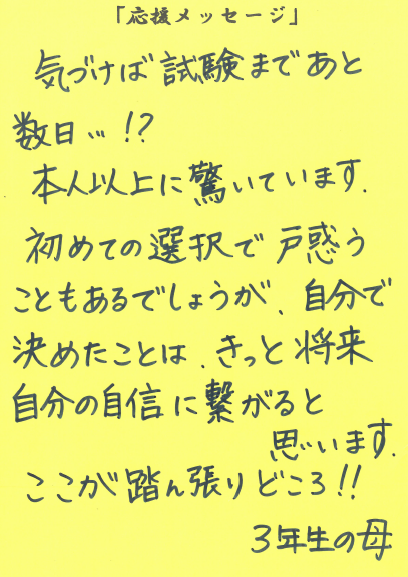 「応援メッセージ」
気づけば試験まであと
数日…!?
本人以上に驚いています.
初めての選択で戸惑う
こともあるでしょうが、自分で
決めたことは、きっと将来
自分の自信に繋がると
思います.
ここが踏ん張りどころ!!
3年生の母